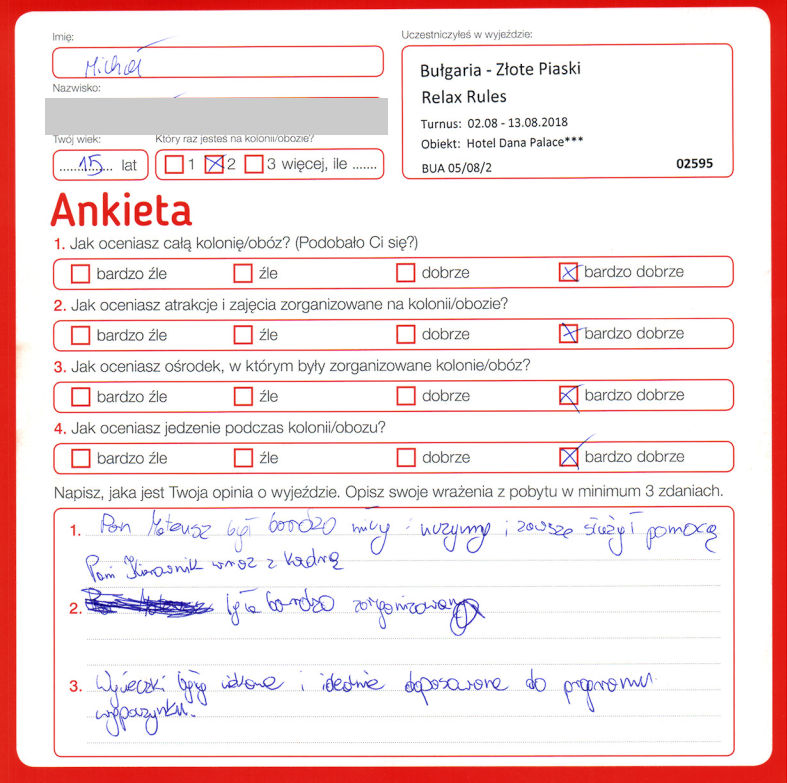 Imię:
Michał
Uczestniczyłeś w wyjeździe:
Bułgaria - Złote Piaski
Relax Rules
Turnus: 02.08 - 13.08.2018
Obiekt: Hotel Dana Palace***
BUA 05/08/2
02595
Nazwisko:
Twój wiek:
15 lat
Który raz jesteś na kolonii/obozie?
1 2 3 więcej, ile .......
Ankieta
1. Jak oceniasz całą kolonię/obóz? (Podobało Ci się?)
bardzo źle źle dobrze bardzo dobrze
2. Jak oceniasz atrakcje i zajęcia zorganizowane na kolonii/obozie?
bardzo źle źle dobrze bardzo dobrze
3. Jak oceniasz ośrodek, w którym były zorganizowane kolonie/obóz?
bardzo źle źle dobrze bardzo dobrze
4. Jak oceniasz jedzenie podczas kolonii/obozu?
bardzo źle źle dobrze bardzo dobrze
Napisz, jaka jest Twoja opinia o wyjeździe. Opisz swoje wrażenia z pobytu w minimum 3 zdaniach.
1. Pan Mateusz był bardzo miły i uczynny i zawsze służył pomocą
Pani Kierownik wraz z kadrą
2. była bardzo zorganizowana
3. Wycieczki były udane i idealnie dopasowane do programu
wypoczynku.